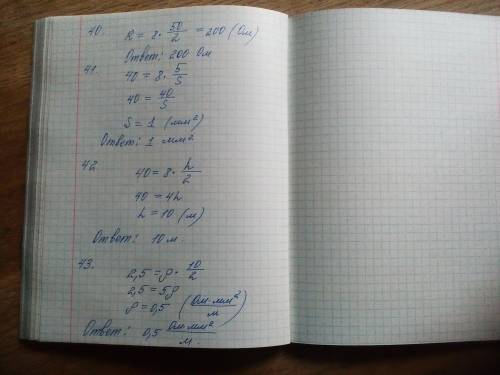 40. R = 8 · 50/2 = 200 (Ом)
Ответ: 200 Ом
41. 40 = 8 · 5/S
40 = 40/S
S = 1 (мм²)
Ответ: 1 мм²
42 40 = 8 · L/2
40 = 4L
L = 10 (м)
Ответ: 10 м.
43. 2,5 = ρ · 10/2
2,5 = 5ρ
ρ = 0,5 (Ом·мм²/м)
Ответ: 0,5 Ом·мм²/м.